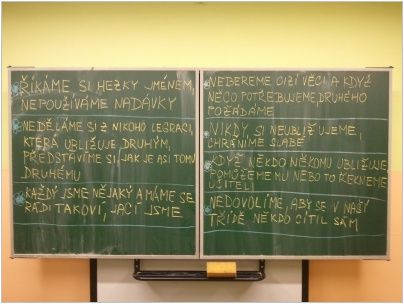 ŘÍKÁME SI HEZKY JMÉNEM,
NEPOUŽÍVÁME NADÁVKY
NEDĚLÁME SI Z NIKOHO LEGRACI,
KTERÁ UBLIŽUJE DRUHÝM,
PŘEDSTAVÍME SI, JAK JE ASI TOMU
DRUHÉMU
KAŽDÝ JSME NĚJAKÝ A MÁME SE
RÁDI TAKOVÍ, JACÍ JSME
NEBEREME CIZÍ VĚCI A KDYŽ
NĚCO POTŘEBUJEME, DRUHÉHO
POŽÁDÁME
NIKDY SI NEUBLIŽUJEME,
CHRÁNÍME SLABÉ
KDYŽ NĚKDO NĚKOMU UBLIŽUJE,
POMŮŽEME MU NEBO TO ŘEKNEME
UČITELI
NEDOVOLÍME, ABY SE V NAŠÍ
TŘÍDĚ NĚKDO CÍTIL SÁM